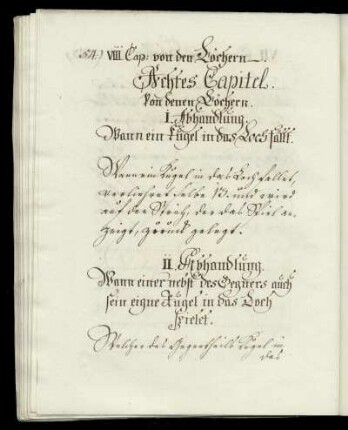 54.) VIII. Cap: von den Löchern
Achtes Capitel.
Von denen Löchern.
I. Abhandlung.
Wann ein Kugel in das Loch fallt.
Wann ein Kugel in das Loch fallet,
verliehret selbe 13. und wird
auf den Strich, der das Spiel an-
zeigt, zuruck gelegt.
II. Abhandlung.
Wann einer nebst des Gegners auch
sein eigne Kugel in das Loch
spielet.
Welcher des Gegentheils Kugel in
das